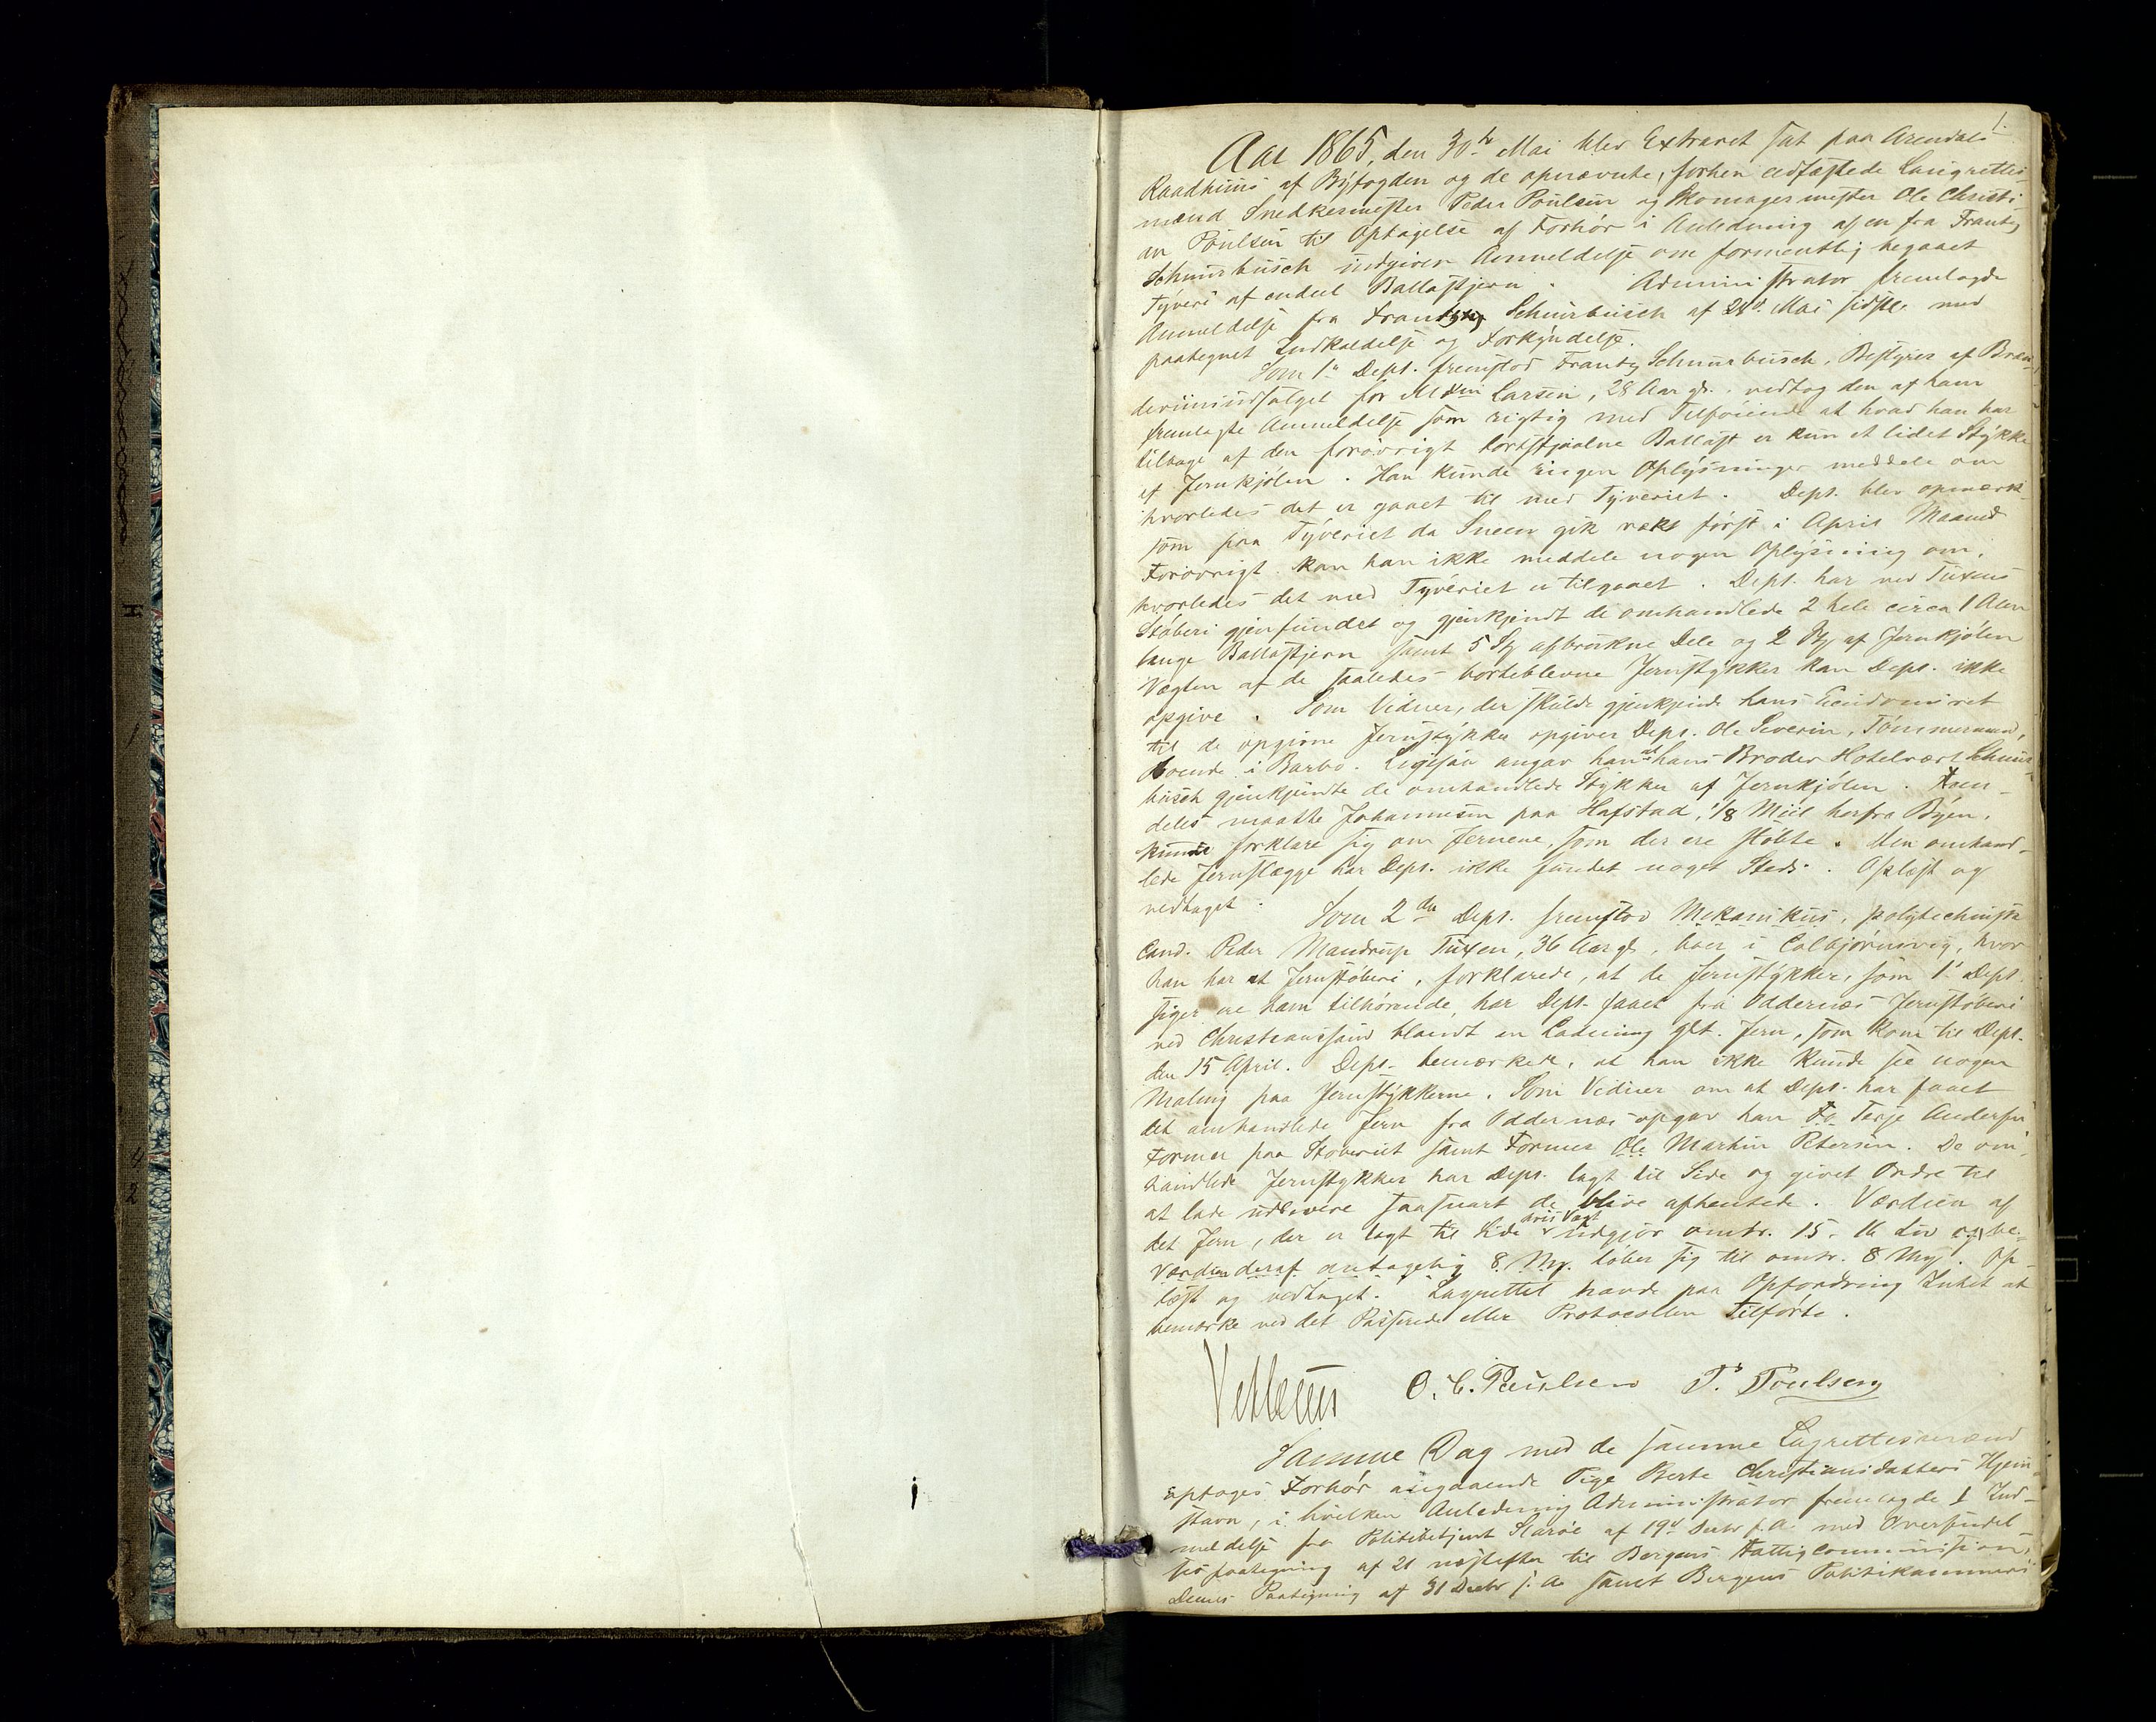 1.
Aar 1865, den 30te Mai blev Extraret sat paa Arendals
Raadhuus af Byfogden og de opnævnte, forhen edfæstede Laugrettes-
mænd Snedkermester Peder Poulsen og Skomagermester Ole Christi-
an Poulsen til Optagelse af Forhør i Anledning af en fra Frantz
Schnurbusch indgiven Anmeldelse om formentlig begaaet
Tyveri af endeel Ballastjern. Administrator fremlagde
Anmeldelse fra Frantz Schnurbusch af 28d. Mai sidstl. med
paategnet Indkaldelse og Forkyndelse.
Som 1ste Dept. fremstod Frantz Schnurbusch, Bestyrer af Bræn-
deviinsudsalget for Mdm Larsen, 28 Aar gl. vedtog den af ham
fremlagte Anmeldelse som rigtig med Tilføiende at hvad han har
tilbage af den forøvrigt bortstjaalne Ballast er kun et lidet Stykke
af Jernkjølen. Han kunde ingen Oplysninger meddele om
hvorledes det er gaaet til med Tyveriet. Dept. blev opmærk-
som paa Tyveriet da Sneen gik væk først i April Maaned
Forøvrigt kan han ikke meddele nogen Oplysning om,
hvorledes det med Tyveriet er tilgaaet. Dept. har ved Tuxens
Støberi gjenfundet og gjenkjendt de omhandlede 2 hele circa 1 Alen
lange Ballastjern samt 5 Stk afbrukne Dele og 2 Stk af Jernkjølen
Vægten af de saaledes bortblevne Jernstykker kan Dept. ikke
opgive. Som Vidner, der skulde gjenkjende hans Eiendomsret
til de opgivne Jernstykker opgiver Dept. Ole Severin, Tømmermand,
boende i Barbo. Ligesaa angav han at hans Broder Hotelvært Schnur-
busch gjenkjendte de omhandlede Stykker af Jernkjølen. Frem-
deles maatte Johannesen paa Hafstad, 1/8 Miil herfra Byen,
kunde forklare sig om Jernene, som der ere støbte. Den omhand-
lede Jernslægge har Dept. ikke fundet noget Steds. Oplæst og
vedtaget.
Som 2den Dept. fremstod Mekanikus, polytechnisk
Cand. Peder Mandrup Tuxen, 36 Aar gl., boer i Colbjørnsvig, hvor
han har et Jernstøberi, forklarede, at de Jernstykker, som 1ste Dept.
siger ere ham tilhørende, har Dept. faaet fra Oddernæs Jernstøberi
ved Christianssand blandt en Ladning glt. Jern, som kom til Dept.
den 15 April. Dept. bemærkede, at han ikke kunde see nogen
Maling paa Jernstykkerne. Som Vidner om at Dept. har faaet
det omhandlede Jern fra Oddernæs opgav han Terje Andersen
Former paa Støberiet samt Former Ole Martin Petersen. De om-
handlede Jernstykker har Dept. lagt til Side og givet Ordre til
at lade udlevere saasnart de blive afhentede. Værdien af
det Jern, der er lagt til Side hvis Vægt udgjør omtr. 15-16 Liv og be-
Værdien deraf antagelig 8 Mk. løber sig til omtr. 8 Mk. Op-
læst og vedtaget. Lagrettet havde paa Opfordring Intet at
bemærke ved det Passerede eller Protocollen Tilførte.
O. C. Poulsen P. Poulsen
Samme Dag med de samme Lagrettesmænd
optoges Forhør angaaende Pige Berte Christiansdatters Hjem-
stavn, i hvilken Anledning Administrator fremlagde 1 Ind-
meldelse fra Politibetjent af 19d Decbr f. A. med Oversendel-
sespaategning af 21 næstefter til Bergens Fattigcommission,
Dennes Paategning af 31 Decbr f. A. samt Bergens Politikammers